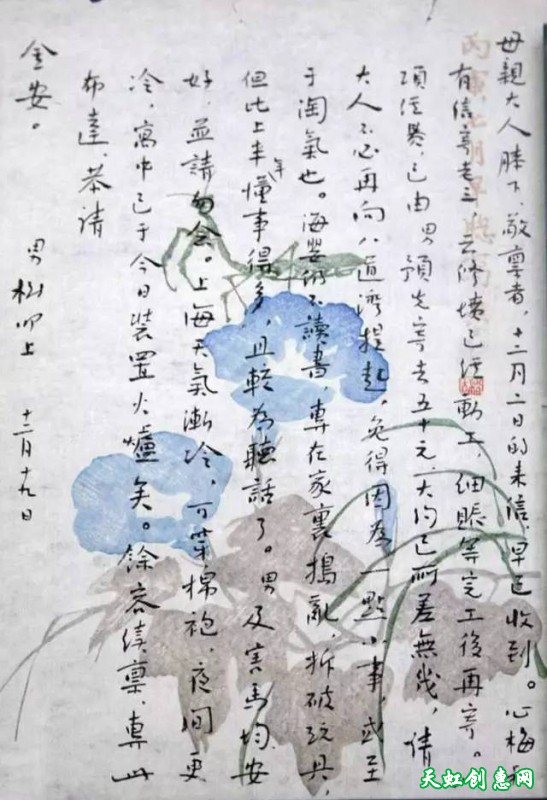 母親大人膝下，敬禀者，十二月二日的来信，早已收到。心梅
有信寄老三，云修墳已經動工，細賬等完工後再寄。
項經費，已由男預先寄去五十元，大約已所差無幾，倩
大人不必再向八道灣提起，免得因為一點小事，或至
于淘氣也。海嬰仍不讀書，專在家裏搗亂，拆破玩具，
但比上半年懂事得多，且較為聽話了。男及害馬均安
好，並請勿念。上海天氣漸冷，可穿棉袍，夜間更
冷，寓中已于今日裝置火爐矣。餘容續禀，專此
布達，恭請
金安。
男樹叩上
十二月十九日
天虹创惠网